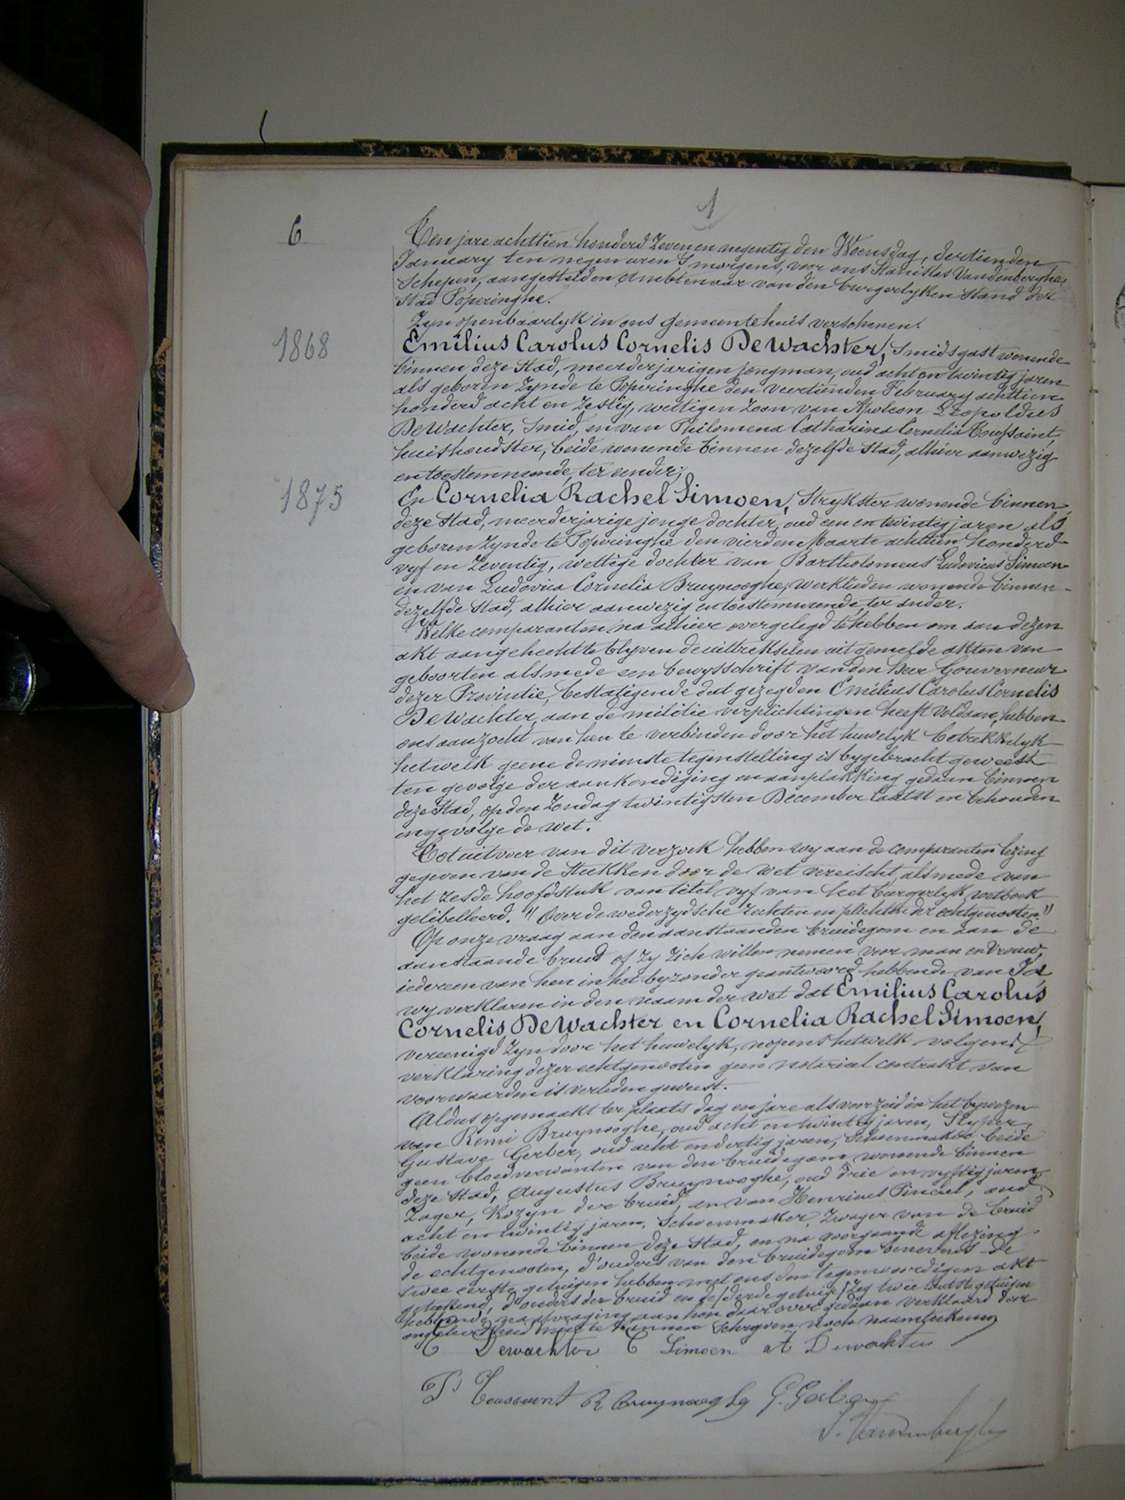 1
6
Ten jare achttien honderd Zeven en negentig den Woensdag, dertienden
January ten negen uren 's morgens, voor ons Stanislas Vandenberghe,
Schepen, aangestelden Ambtenaar van den burgerlyken Stand der
Stad Poperinghe.
Zyn openbaarlyk in ons gemeentehuis verschenen:
1868
Emilius Carolus Cornelis DeWachter, Smidsgast wonende
binnen deze Stad, meerderjarigen jongman, oud acht en twintig jaren
als geboren zynde te Poperinghe den veertienden February achttien
honderd acht en zestig, wettigen zoon van Leopoldus
DeWachter, Smid, en van Philomena Catharina Cornelia Toussaint,
huishoudster, beide wonende binnen dezelfde Stad, alhier aanwezig
en toestemmende, ter eender;
1875
En Cornelia Rachel Simoen, Strykster wonende binnen
deze Stad, meerderjarige jonge dochter, oud een en twintig jaren als
geboren zynde te Poperinghe den vierden Maarte achttien honderd
vyf en Zeventig, wettige dochter van Bartholomeus Ludovicus Simoen
en van Ludovica Cornelia Bruynooghe, werklieden wonende binnen
dezelfde Stad, alhier aanwezig en toestemmende ter ander.
Welke comparanten na alhier overgelegd te hebben om aan dezen
akt aangehecht te blyven de uittrekselen uit gemelde akten van
geboorten alsmede een bewysschrift van den heer Gouverneur
dezer Provintie, bestatigende dat gezegden Emilius Carolus Cornelis
DeWachter, aan de militie verplichtingen heeft voldaan, hebben
ons aanzocht van hen te verbinden door het huwelyk betrekkelyk
hetwelk geene de minste tegenstelling is bygebracht geweest
ten gevolge der aankondiging en aanplakking gedaan binnen
deze Stad, op den Zondag twintigsten December laatst en behouden
ingevolge de wet.
Tot uitvoer van dit verzoek hebben wy aan de comparanten lezing
gegeven van de Stukken door de wet vereischt, alsmede van
het zesde hoofdstuk van titel vyf van het burgerlyk wetboek
gelibelleerd. "Over de wederzydsche rechten en plichten der echtgenooten"
Op onze vraag aan den aanstaanden bruidegom en aan de
aanstaande bruid of zy zich willen nemen voor man en vrouw,
iedereen van hen in het byzonder geantwoord hebbende van Ja
wy verklaren in den naam der wet dat Emilius Carolus
Cornelis DeWachter en Cornelia Rachel Simoen,
vereenigd zyn door het huwelyk, nopens hetwelk volgens
verklaring dezer echtgenooten geen notarial contrakt van
voorwaarden is verleden geweest.
Aldus opgemaakt ter plaats dag en jare als voorzeid in het bywezen
van Remi Bruynooghe, oud acht en twintig jaren,
Gustave Gerber, oud acht en dertig jaren, Schoenmaker, beide
geen bloedverwanten van den bruidegom wonende binnen
deze Stad, Augustus Bruynooghe, oud drie en vyftig jaren
Zager, Kozyn der bruid, en van Henricus oud
acht en twintig jaren, Schoenmaker, Zwager van de bruid
beide wonende binnen deze Stad, en na voorgaande aflezing
de echtgenooten, d'ouders van den bruidegom benevens de
twee eerste getuigen hebben met ons den tegenwoordigen akt
geteekend, d'ouders der bruid en de twee laatste getuigen
hebbende na afvraging aan hen daarover gedaan verklaard door
ongeleerdheid niet te kunnen schryven noch naamteekenen
E Dewachter C Simoen at Dewachter
P Toussaint R Bruynooghe G. Gerber
S. Vandenberghe